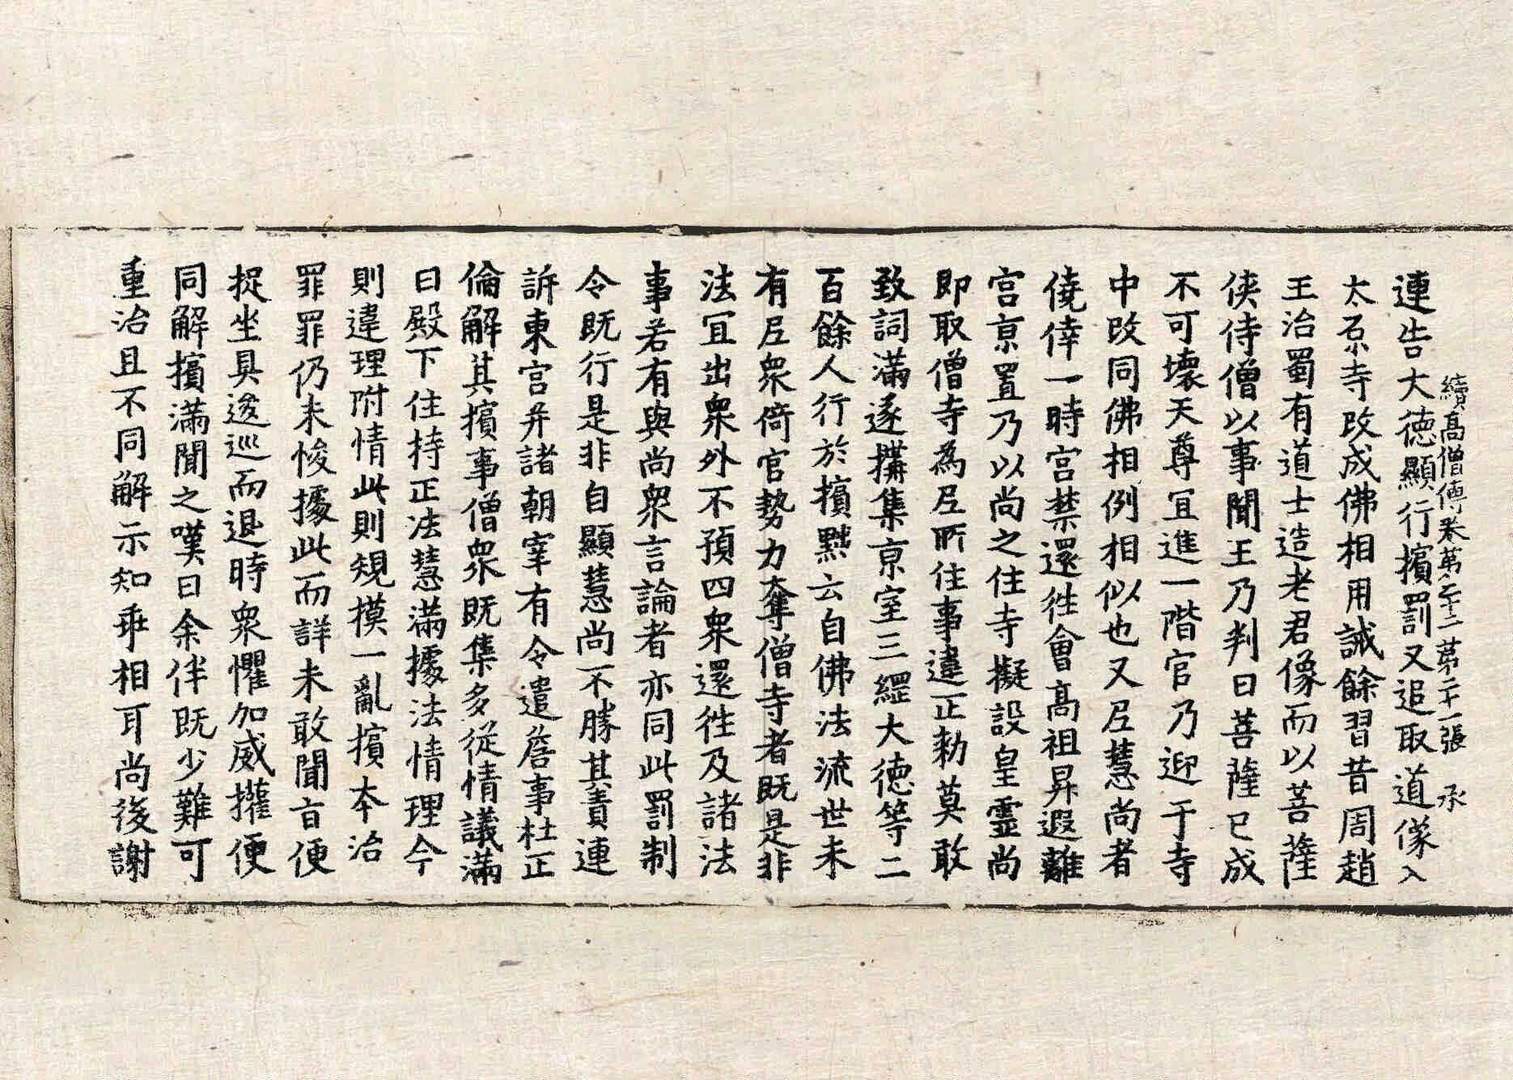 續高僧傳卷第二十二 第二十一張 承
連告大德顯行擯罰又追取道像入
太原寺改成佛相用誡餘習昔周趙
王治蜀有道士造老君像而以菩薩
俠侍僧以事聞王乃判曰菩薩已成
不可壞天尊冝進一階官乃迎于寺
中改同佛相例相似也又尼慧尚者
僥倖一時宫禁還徃會高祖昇遐離
宫京置乃以尚之住寺擬設皇靈尚
即取僧寺為尼所住事違正勑莫敢
致詞滿遂搆集京室三綱大德等二
百餘人行於擯黙云自佛法流世未
有尼衆倚官勢力奪僧寺者既是非
法冝出衆外不預四衆還徃及諸法
事若有與尚衆言論者亦同此罰制
令既行是非自顯慧尚不勝其責連
訴東宫并諸朝宰有令遣詹事杜正
倫解其擯事僧衆既集多從情議滿
曰殿下住持正法慧滿據法情理今
則違理附情此則規摸一亂擯夲治
罪罪仍未悛據此而詳未敢聞旨便
捉坐具逡巡而退時衆懼加威權便
同解擯滿聞之嘆曰余伴既少難可
重治且不同解示知乖相耳尚後謝